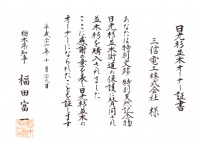 日光杉並木オーナー証書
三信電工株式会社 様
あなたは特別史跡・特別天然記念物
日光杉並木街道の保護に賛同され
並木杉を購入されました
ここに感謝の意を表し日光杉並木の
オーナーになられたことを証します
平成二十六年十月二十九日
栃木県知事 福田富一